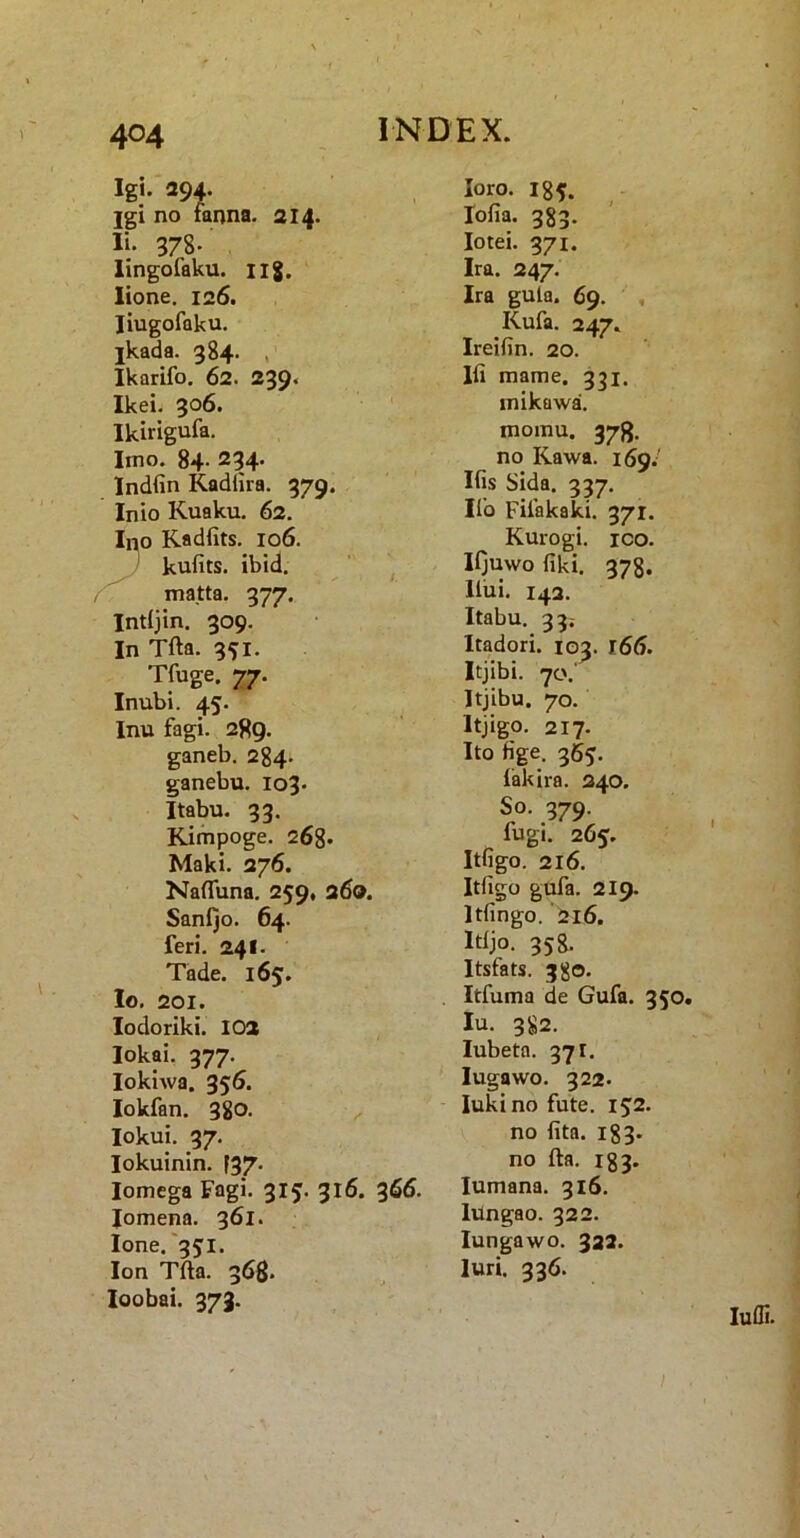 404 INDEX.
Igi. 294.
Igi no fanna. 214.
Ii. 378.
Iingoſaku. 118.
Iione. 126.
Iiugoſaku.
Ikada. 384.
Ikariſo. 62. 239.
Ikei. 306.
Ikiriguſa.
Imo. 84. 234.
Indſin Kadſira. 379.
Inio Kuaku. 62.
Ino Kadſits. 106.
kuſits. ibid.
matta. 377.
Intſjin. 309.
In Tſta. 351.
Tſuge. 77.
Inubi. 45.
Inu fagi. 289.
ganeb. 284.
ganebu. 103.
Itabu. 33.
Kimpoge. 268.
Maki. 276.
Naſſuna. 259, 260.
Sanſjo. 64.
ſeri. 241.
Tade. 165.
Io. 201.
Iodoriki. 102
Iokai. 377.
Iokiwa. 356.
Iokſan. 380.
Iokui. 37.
Iokuinin. 137.
Iomega Fagi. 315. 316. 366.
Iomena. 361.
Ione. 351.
Ion Tſta. 368.
Ioobai. 373.
Ioro. 185.
Ioſia. 383.
Iotei. 371.
Ira. 247.
Ira gula. 69.
Kuſa. 247.
Ireiſin. 20.
Iſi mame. 331.
mikawa.
momu. 378.
no Kawa. 169.
Iſis Sida. 337.
Iſo Fiſakaki. 371.
Kurogi. 100.
Iſjuwo ſiki. 378.
Iſui. 142.
Itabu. 33.
Itadori. 103. 166.
Itjibi. 70.
Itjibu. 70.
Itjigo. 217.
Ito fige. 365.
ſakira. 240.
So. 379.
ſugi. 265.
Itſigo. 216.
Itſigo guſa. 219.
Itſingo. 216.
Itſjo. 358.
Itsfats. 380.
Itſuma de Guſa. 350.
Iu. 382.
Iubeta. 371.
Iugawo. 322.
Iuki no ſute. 152.
no ſita. 183.
no ſta. 183.
Iumana. 316.
Iungao. 322.
Iungawo. 322.
Iuri. 336.
Iuſſi.